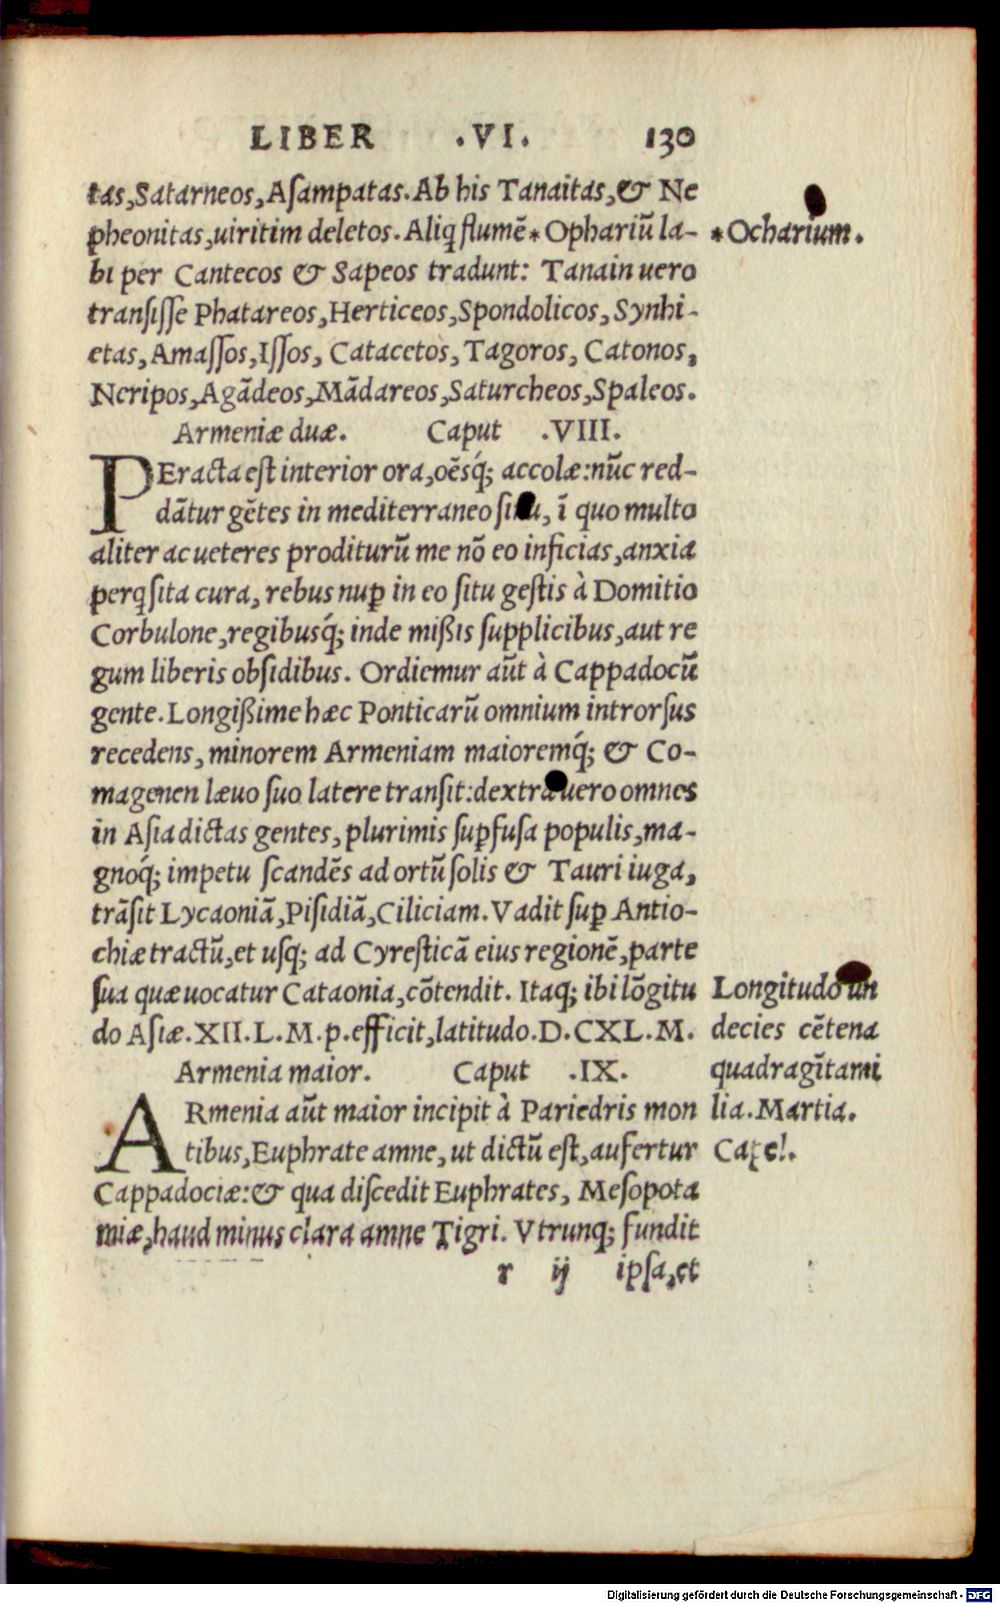 LIBER .VI. 130
tas,Satarneos,Aſampatas.Ab his Tanaitas,& Ne
pheonitas,uiritim deletos.Aliq flumē*Ophariū la-
*Ocharium.
bi per Cantecos & Sapeos tradunt: Tanain uero
tranſiſſe Phatareos,Herticeos,Spondolicos,Synhi-
etas,Amaſſos,Iſſos, Catacetos, Tagoros, Catonos,
Neripos,Agādeos,Mādareos,Saturcheos,Spaleos.
Armeniæ duæ. Caput .VIII.
PEracta eſt interior ora,oēsq́; accolæ:nūc red-
dātur gētes in mediterraneo ſitu, ī quo multo
aliter ac ueteres proditurū me nō eo inficias,anxia
perqſita cura, rebus nup̄ in eo ſitu geſtis à Domitio
Corbulone,regibusq́; inde mißis ſupplicibus,aut re
gum liberis obſidibus. Ordiemur aūt à Cappadocū
gente.Longißime hæc Ponticarū omnium introrſus
recedens, minorem Armeniam maioremq́; & Co-
magenen læuo ſuo latere tranſit:dextra uero omnes
in Aſia dictas gentes, plurimis ſup̄fuſa populis,ma-
gnoq́; impetu ſcandēs ad ortū ſolis & Tauri iuga,
trāſit Lycaoniā,Piſidiā,Ciliciam.Vadit ſup̄ Antio-
chiæ tractū,et uſq; ad Cyreſticā eius regionē,parte
ſua quæ uocatur Cataonia,cōtendit. Itaq; ibi lōgitu
do Aſiæ.XII.L.M.p.efficit,latitudo.D.CXL.M.
Longitudo un
decies cētena
quadragīta mi
lia.Martia.
Capel.
Armenia maior. Caput .IX.
ARmenia aūt maior incipit à Pariedris mon
tibus,Euphrate amne, ut dictū eſt,aufertur
Cappadociæ:& qua diſcedit Euphrates, Meſopota
miæ,haud minus clara amne Tigri. Vtrunq; fundit
r ij ipſa,et
Digitalisierung gefördert durch die Deutsche Forschungsgemeinschaft - DFG